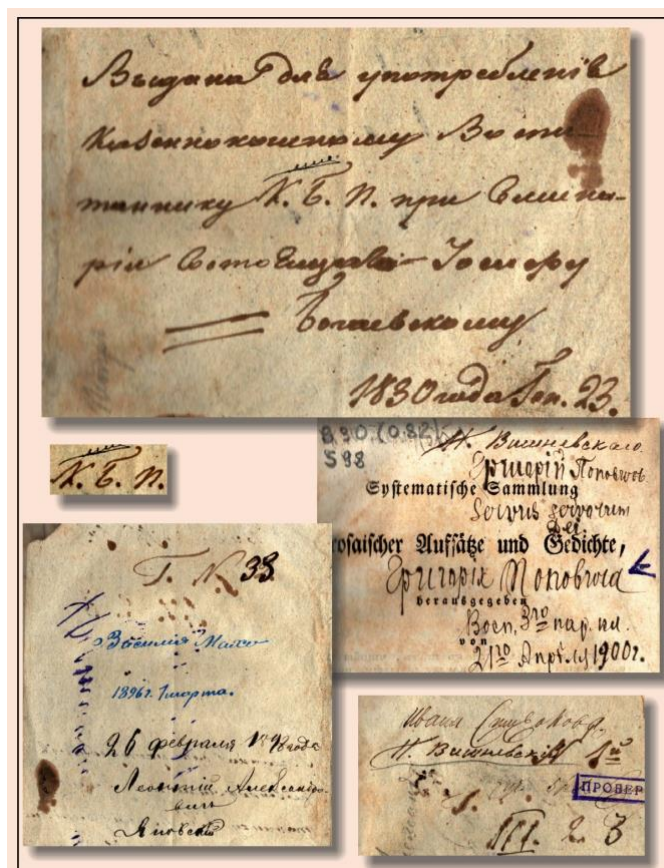 Выдана для употребленія
Казеннокошному Воспи-
таннику К. Б. П. при Семина-
ріи Іосифу
Богаевскому
1830 года Сен. 23.
К. Б. П.
830 (082)
598
Н. Вишневскаго
Григорій Поповичъ
Systematische Sammlung
Servus servorum
Dei
rosaischer Aufsätze und Gedichte,
Григорія Поповича
herausgegeben
Восп. 3го пар. кл.
von
21го Апрѣля 1900 г.
Г. N 33.
Василія
1896 г. 1 марта.
26 февраля 1898 года
Леонтій Александро-
вичъ
Яновскій
Ивана
Н. Вишневскій
ПРОВЕР
III. 2. 3